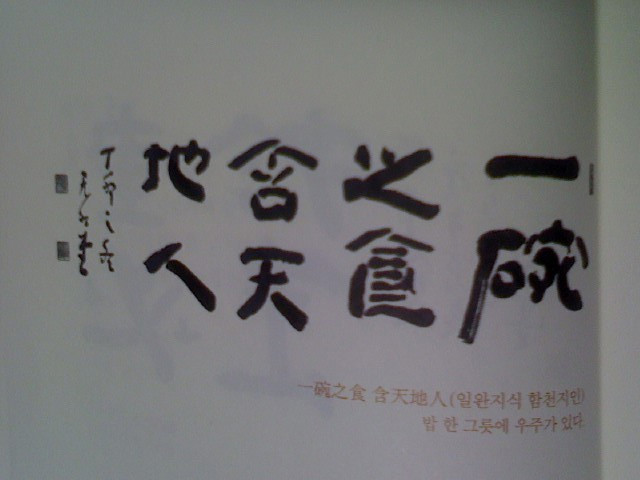 一碗
之食
含天
地人
丁卯之
一碗之食 含天地人(일완지식 함천지인)
밥 한 그릇에 우주가 있다.